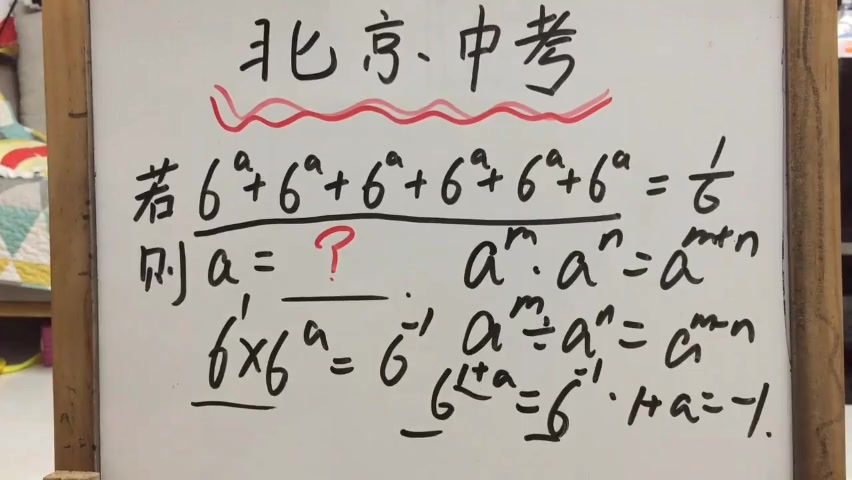 北京·中考
若 6ᵃ+6ᵃ+6ᵃ+6ᵃ+6ᵃ+6ᵃ=1/6
则 a= ? . aᵐ·aⁿ=aᵐ⁺ⁿ
6¹×6ᵃ=6⁻¹ aᵐ÷aⁿ=aᵐ⁻ⁿ
6¹⁺ᵃ=6⁻¹·1+a=-1.